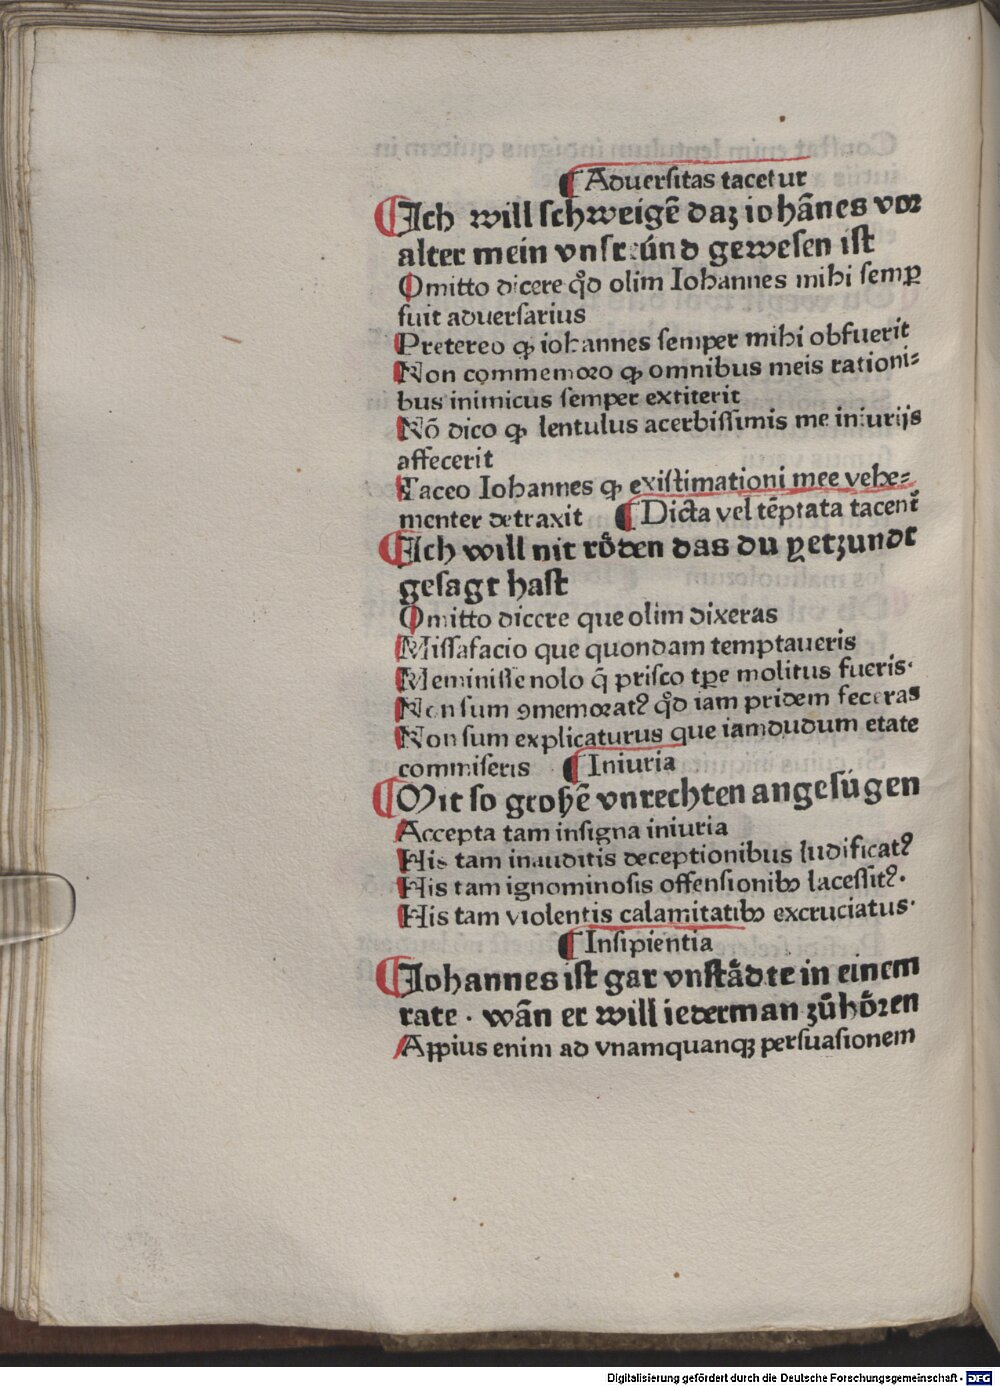 ¶ Aduersitas tacetur
¶ Ich will schweigē daz iohānes vor
alter mein vnfreúnd gewesen ist
Omitto dicere qd̛ olim Iohannes mihi semꝑ
fuit aduersarius
Pretereo ꝙ iohannes semper mihi obfuerit
Non commemoro ꝙ omnibus meis rationi⸗
bus inimicus semper extiterit
Nō dico ꝙ lentulus acerbissimis me iniurijs
affecerit
Taceo Iohannes ꝙ existimationi mee vehe⸗
menter detraxit ¶ Dicta vel tēptata tacent̛
¶ Ich will nit roͤden das du yetzundt
gesagt hast
Omitto dicere que olim dixeras
Missafacio que quondam temptaueris
Meminisse nolo q̄ prisco tꝑe molitus fueris·
Non sum ꝯmemoratꝰ qd̛ iam pridem feceras
Non sum explicaturus que iamdudum etate
commiseris ¶ Iniuria
¶ Mit so grossē vnrechten angefügen
Accepta tam insigna iniuria
His tam inauditis deceptionibus ludificatꝰ
His tam ignominosis offensionibꝰ lacessitꝰ·
His tam violentis calamitatibꝰ excruciatus·
¶ Insipientia
¶ Iohannes ist gar vnstaͤdte in einem
rate · wān er will iederman zuͦhoͤren
Appius enim ad vnamquanqꝫ persuasionem
Digitalisierung gefördert durch die Deutsche Forschungsgemeinschaft - DFG